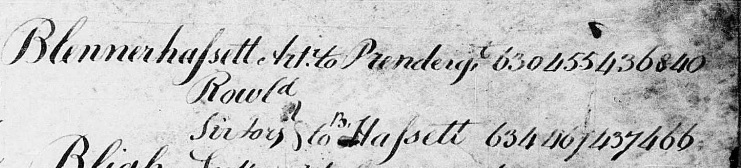 Blennerhassett Art.r to Prenderg.t 630 455 436840
Rowl.d
to Hassett 634 467 437466
Bligh